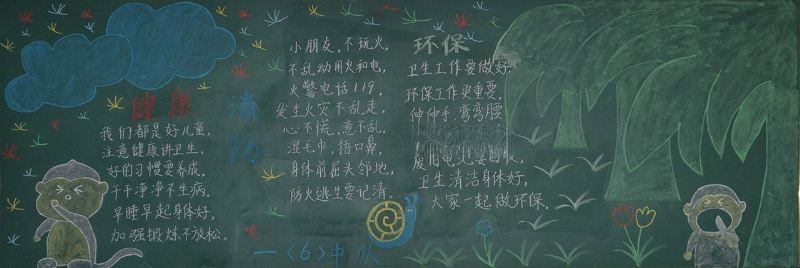 健康
我们都是好儿童，
注意健康讲卫生。
好的习惯要养成，
干干净净不生病，
早睡早起身体好，
加强锻炼不放松。
消防
小朋友，不玩火，
不乱动用火和电，
火警电话119，
发生火灾不乱走，
心不慌，意不乱，
湿毛巾，捂口鼻，
身体前屈夫邻地，
防火逃生要记清。
环保
卫生工作要做好，
环保工作更重要，
伸伸手，弯弯腰
废旧电池要回收，
卫生清洁身体好，
大家一起做环保。
一〈6〉中队